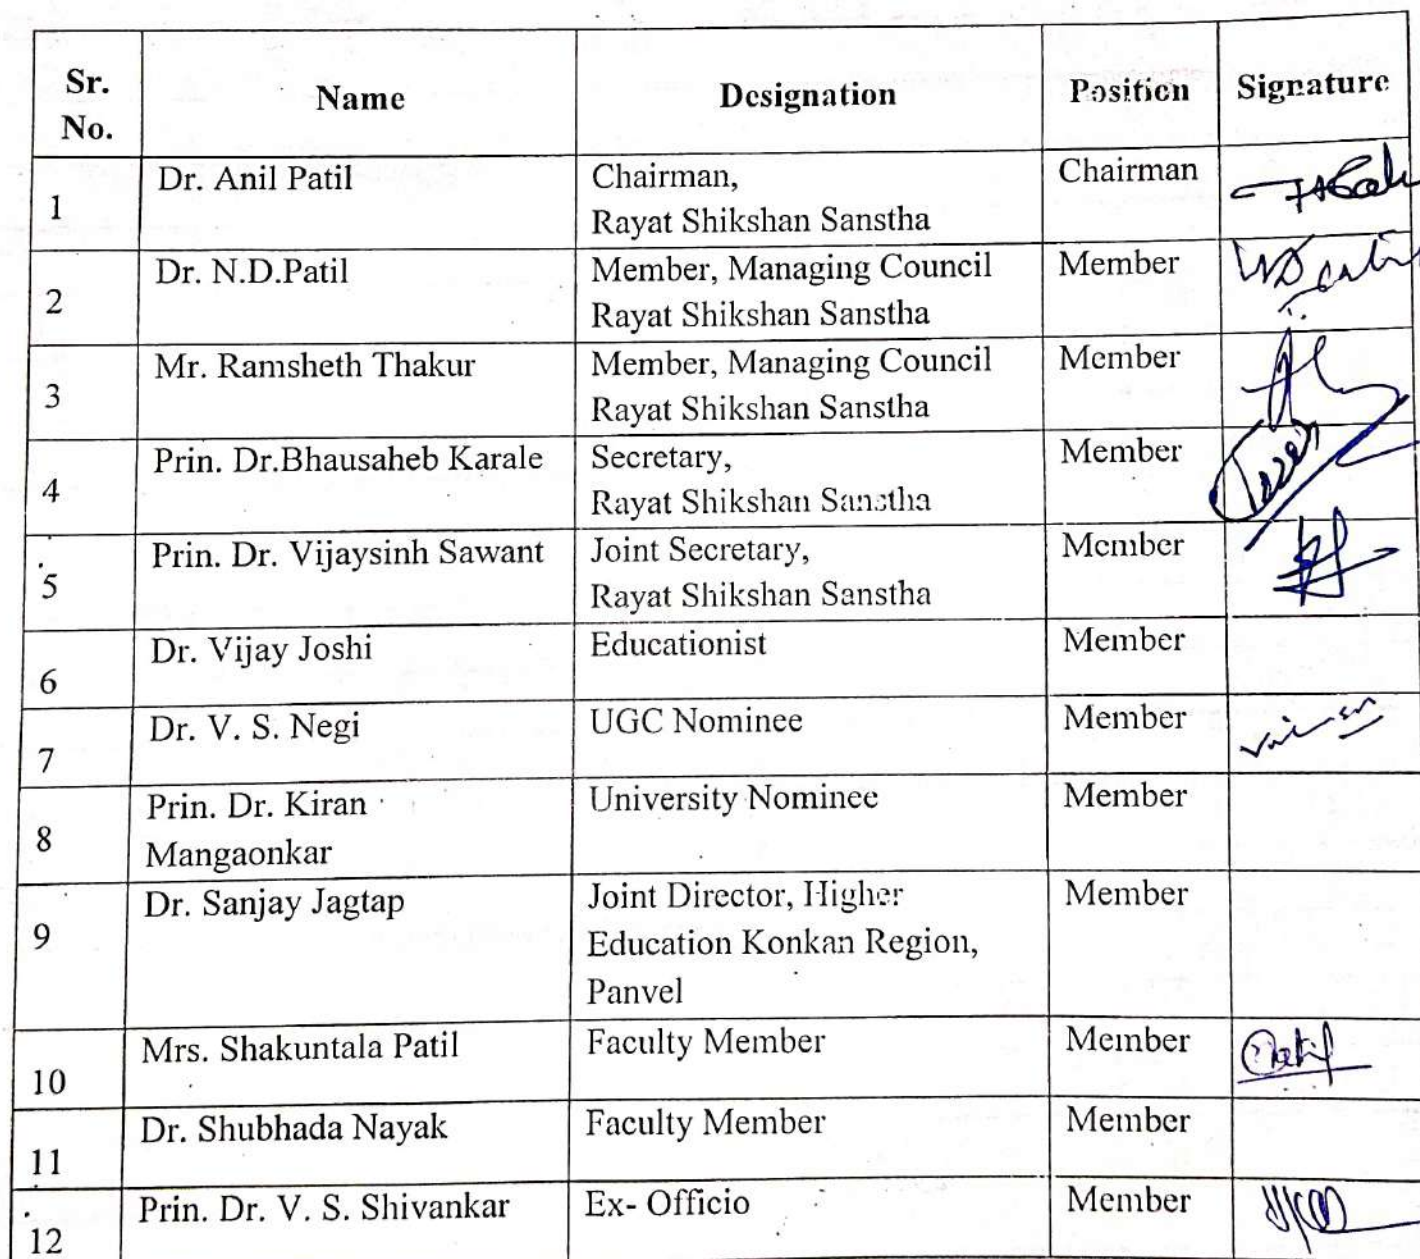 Sr. No. Name Designation Position Signature
1 Dr. Anil Patil Chairman, Chairman
Rayat Shikshan Sanstha
2 Dr. N.D.Patil Member, Managing Council Member
Rayat Shikshan Sanstha
3 Mr. Ramsheth Thakur Member, Managing Council Member
Rayat Shikshan Sanstha
4 Prin. Dr.Bhausaheb Karale Secretary, Member
Rayat Shikshan Sanstha
5 Prin. Dr. Vijaysinh Sawant Joint Secretary, Member
Rayat Shikshan Sanstha
6 Dr. Vijay Joshi Educationist Member
7 Dr. V. S. Negi UGC Nominee Member
8 Prin. Dr. Kiran University Nominee Member
Mangaonkar
9 Dr. Sanjay Jagtap Joint Director, Higher Member
Education Konkan Region,
Panvel
10 Mrs. Shakuntala Patil Faculty Member Member
11 Dr. Shubhada Nayak Faculty Member Member
12 Prin. Dr. V. S. Shivankar Ex- Officio Member